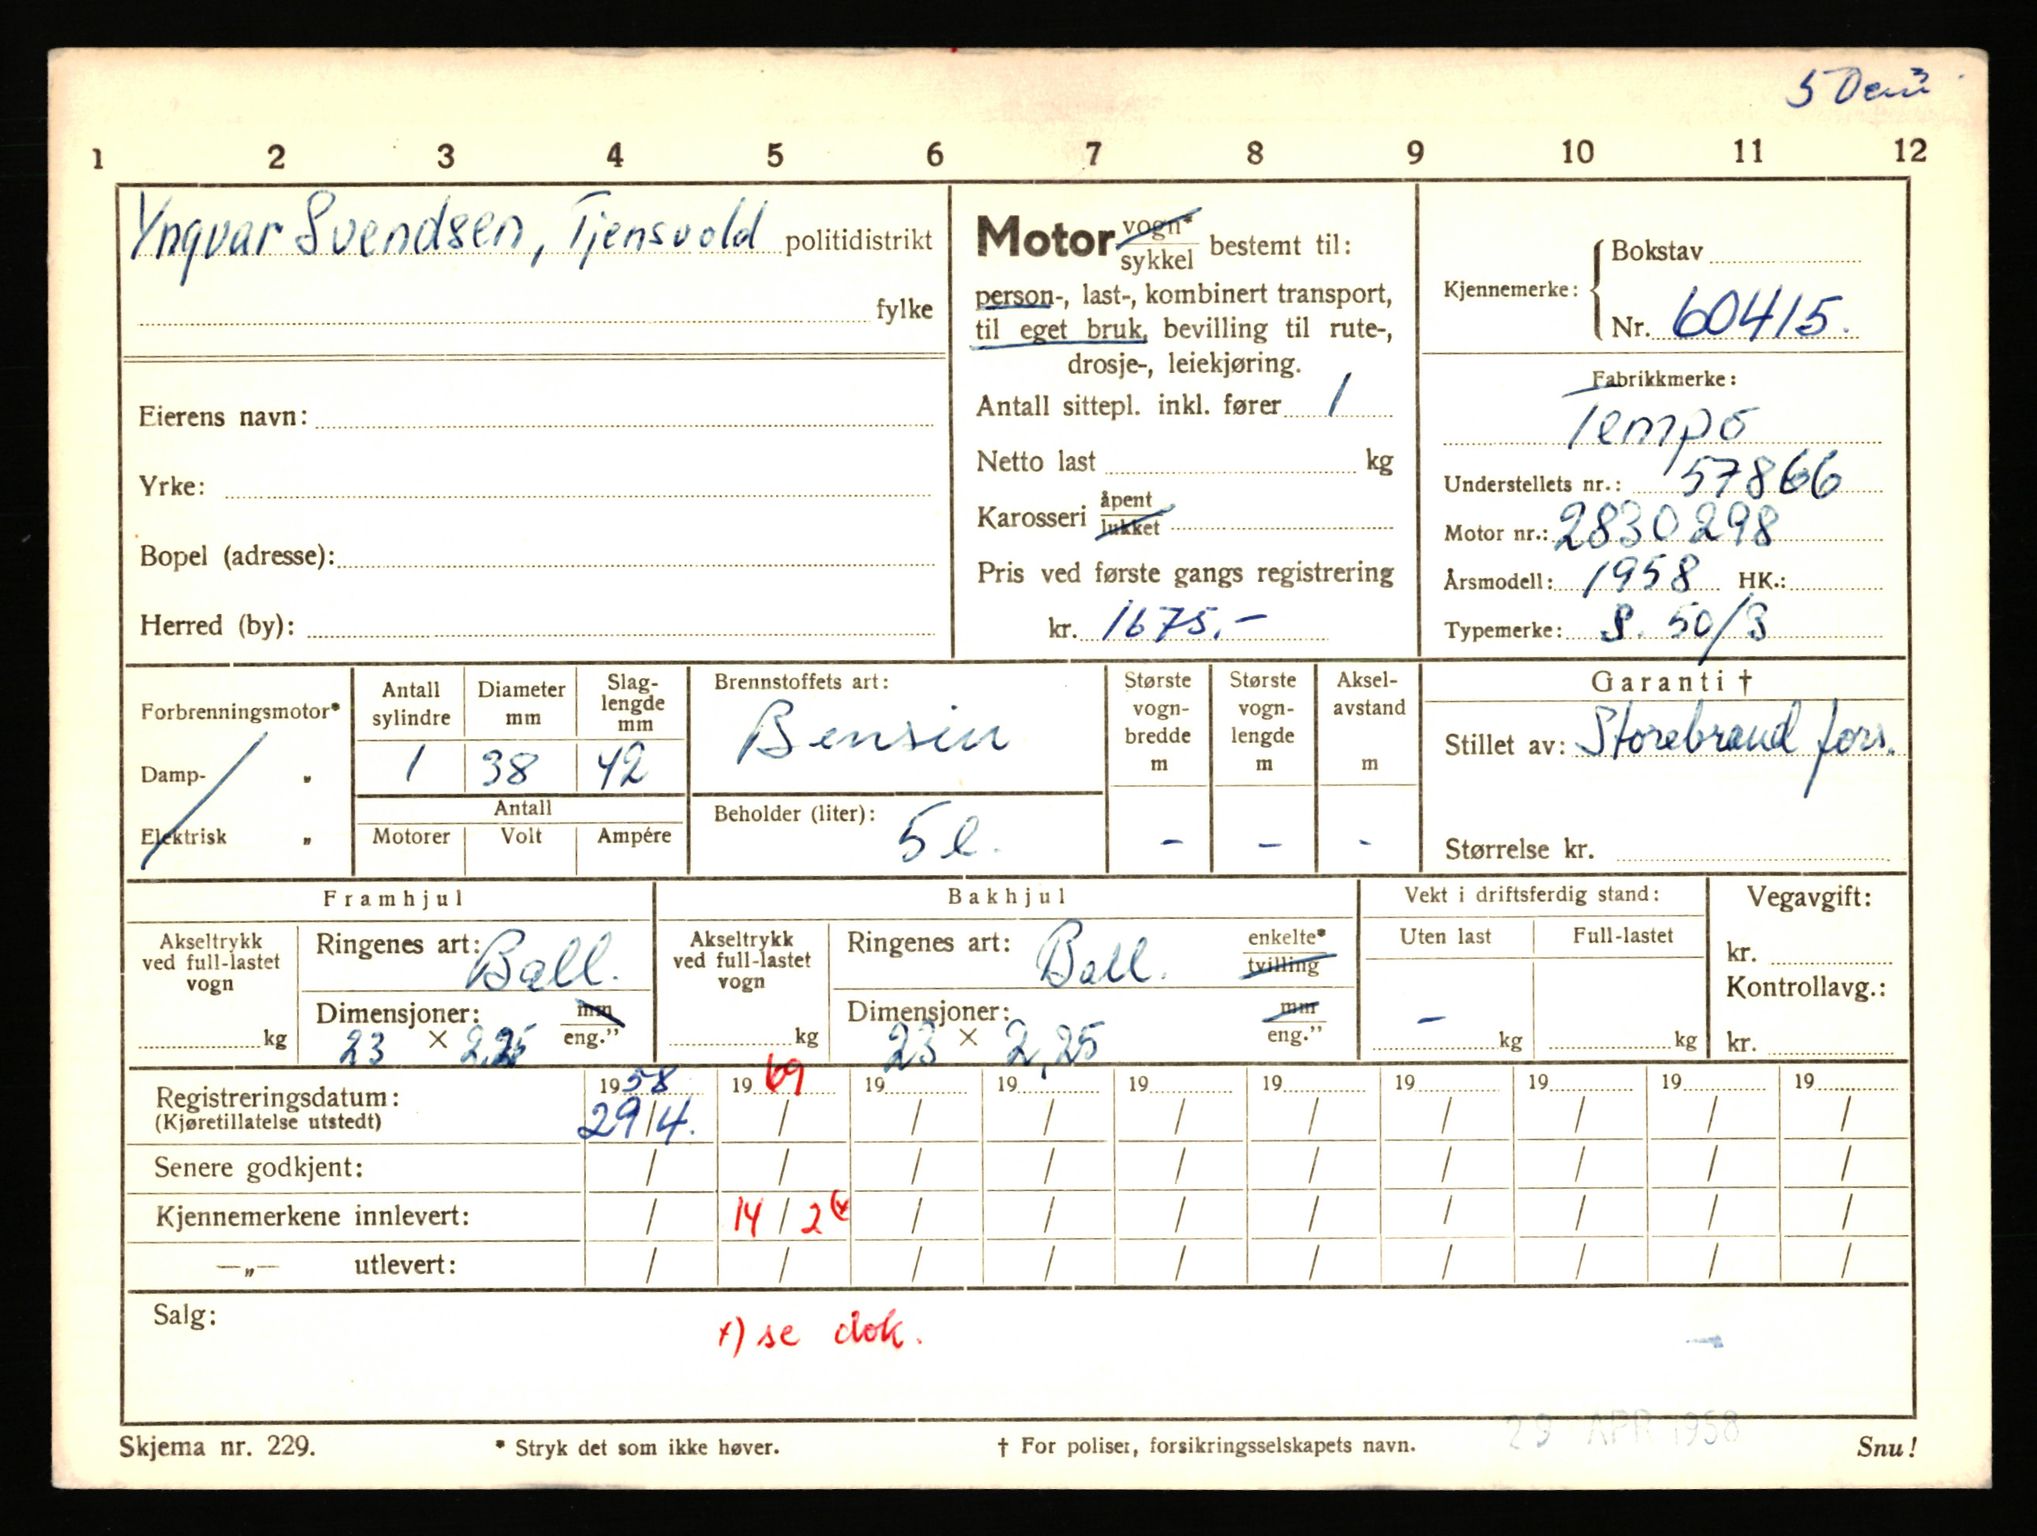 1 2 3 4 5 6 7 8 9 10 11 12
Yngvar Svendsen, Tjensvold politidistrikt
fylke
Eierens navn:
Yrke:
Bopel (adresse):
Herred (by):
Motor vogn* / sykkel bestemt til:
person-, last-, kombinert transport,
til eget bruk, bevilling til rute-,
drosje-, leiekjøring.
Antall sittepl. inkl. fører 1
Netto last kg
Karosseri åpent / lukket
Pris ved første gangs registrering
kr. 1675,-
Kjennemerke: Bokstav
Nr. 60415.
Fabrikkmerke:
Tempo
Understellets nr.: 57866
Motor nr.: 2830298
Årsmodell: 1958 HK.:
Typemerke: S. 50/3
Forbrenningsmotor*
Damp- „
Elektrisk „
Antall sylindre
1
Diameter mm
38
Slag-
lengde
mm
42
Antall
Motorer Volt Ampére
Brennstoffets art:
Bensin
Beholder (liter):
5 l.
Største
vogn-
bredde
m
-
Største
vogn-
lengde
m
-
Aksel-
avstand
m
-
Garanti †
Stillet av: Storebrand fors.
Størrelse kr.
Framhjul
Akseltrykk
ved full-lastet
vogn
kg
Ringenes art: Ball.
Dimensjoner: mm / eng.”
23 × 2,25
Bakhjul
Akseltrykk
ved full-lastet
vogn
kg
Ringenes art: Ball. enkelte* / tvilling
Dimensjoner: mm / eng.”
23 × 2,25
Vekt i driftsferdig stand:
Uten last Full-lastet
- kg kg
Vegavgift:
kr.
Kontrollavg.:
kr.
Registreringsdatum: 1958 1969 19 19 19 19 19 19 19 19
(Kjøretillatelse utstedt) 29/4. / / / / / / / / /
Senere godkjent: / / / / / / / / / /
Kjennemerkene innlevert: / 14/2 x) / / / / / / / /
—„— utlevert: / / / / / / / / / /
Salg:
x) se dok.
29 APR 1958
Skjema nr. 229. * Stryk det som ikke høver. † For poliser, forsikringsselskapets navn. Snu!